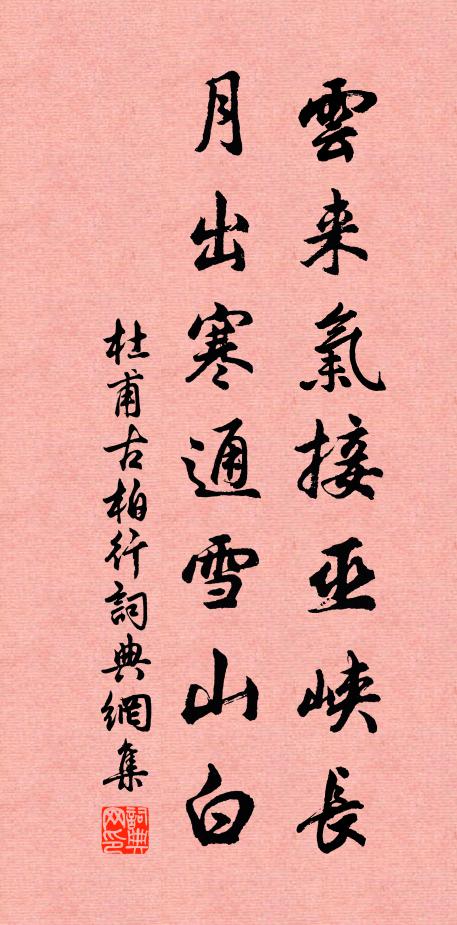 雲来氣接巫峽長
月出寒通雪山白
杜甫古柏行詞典網集
詞典网印